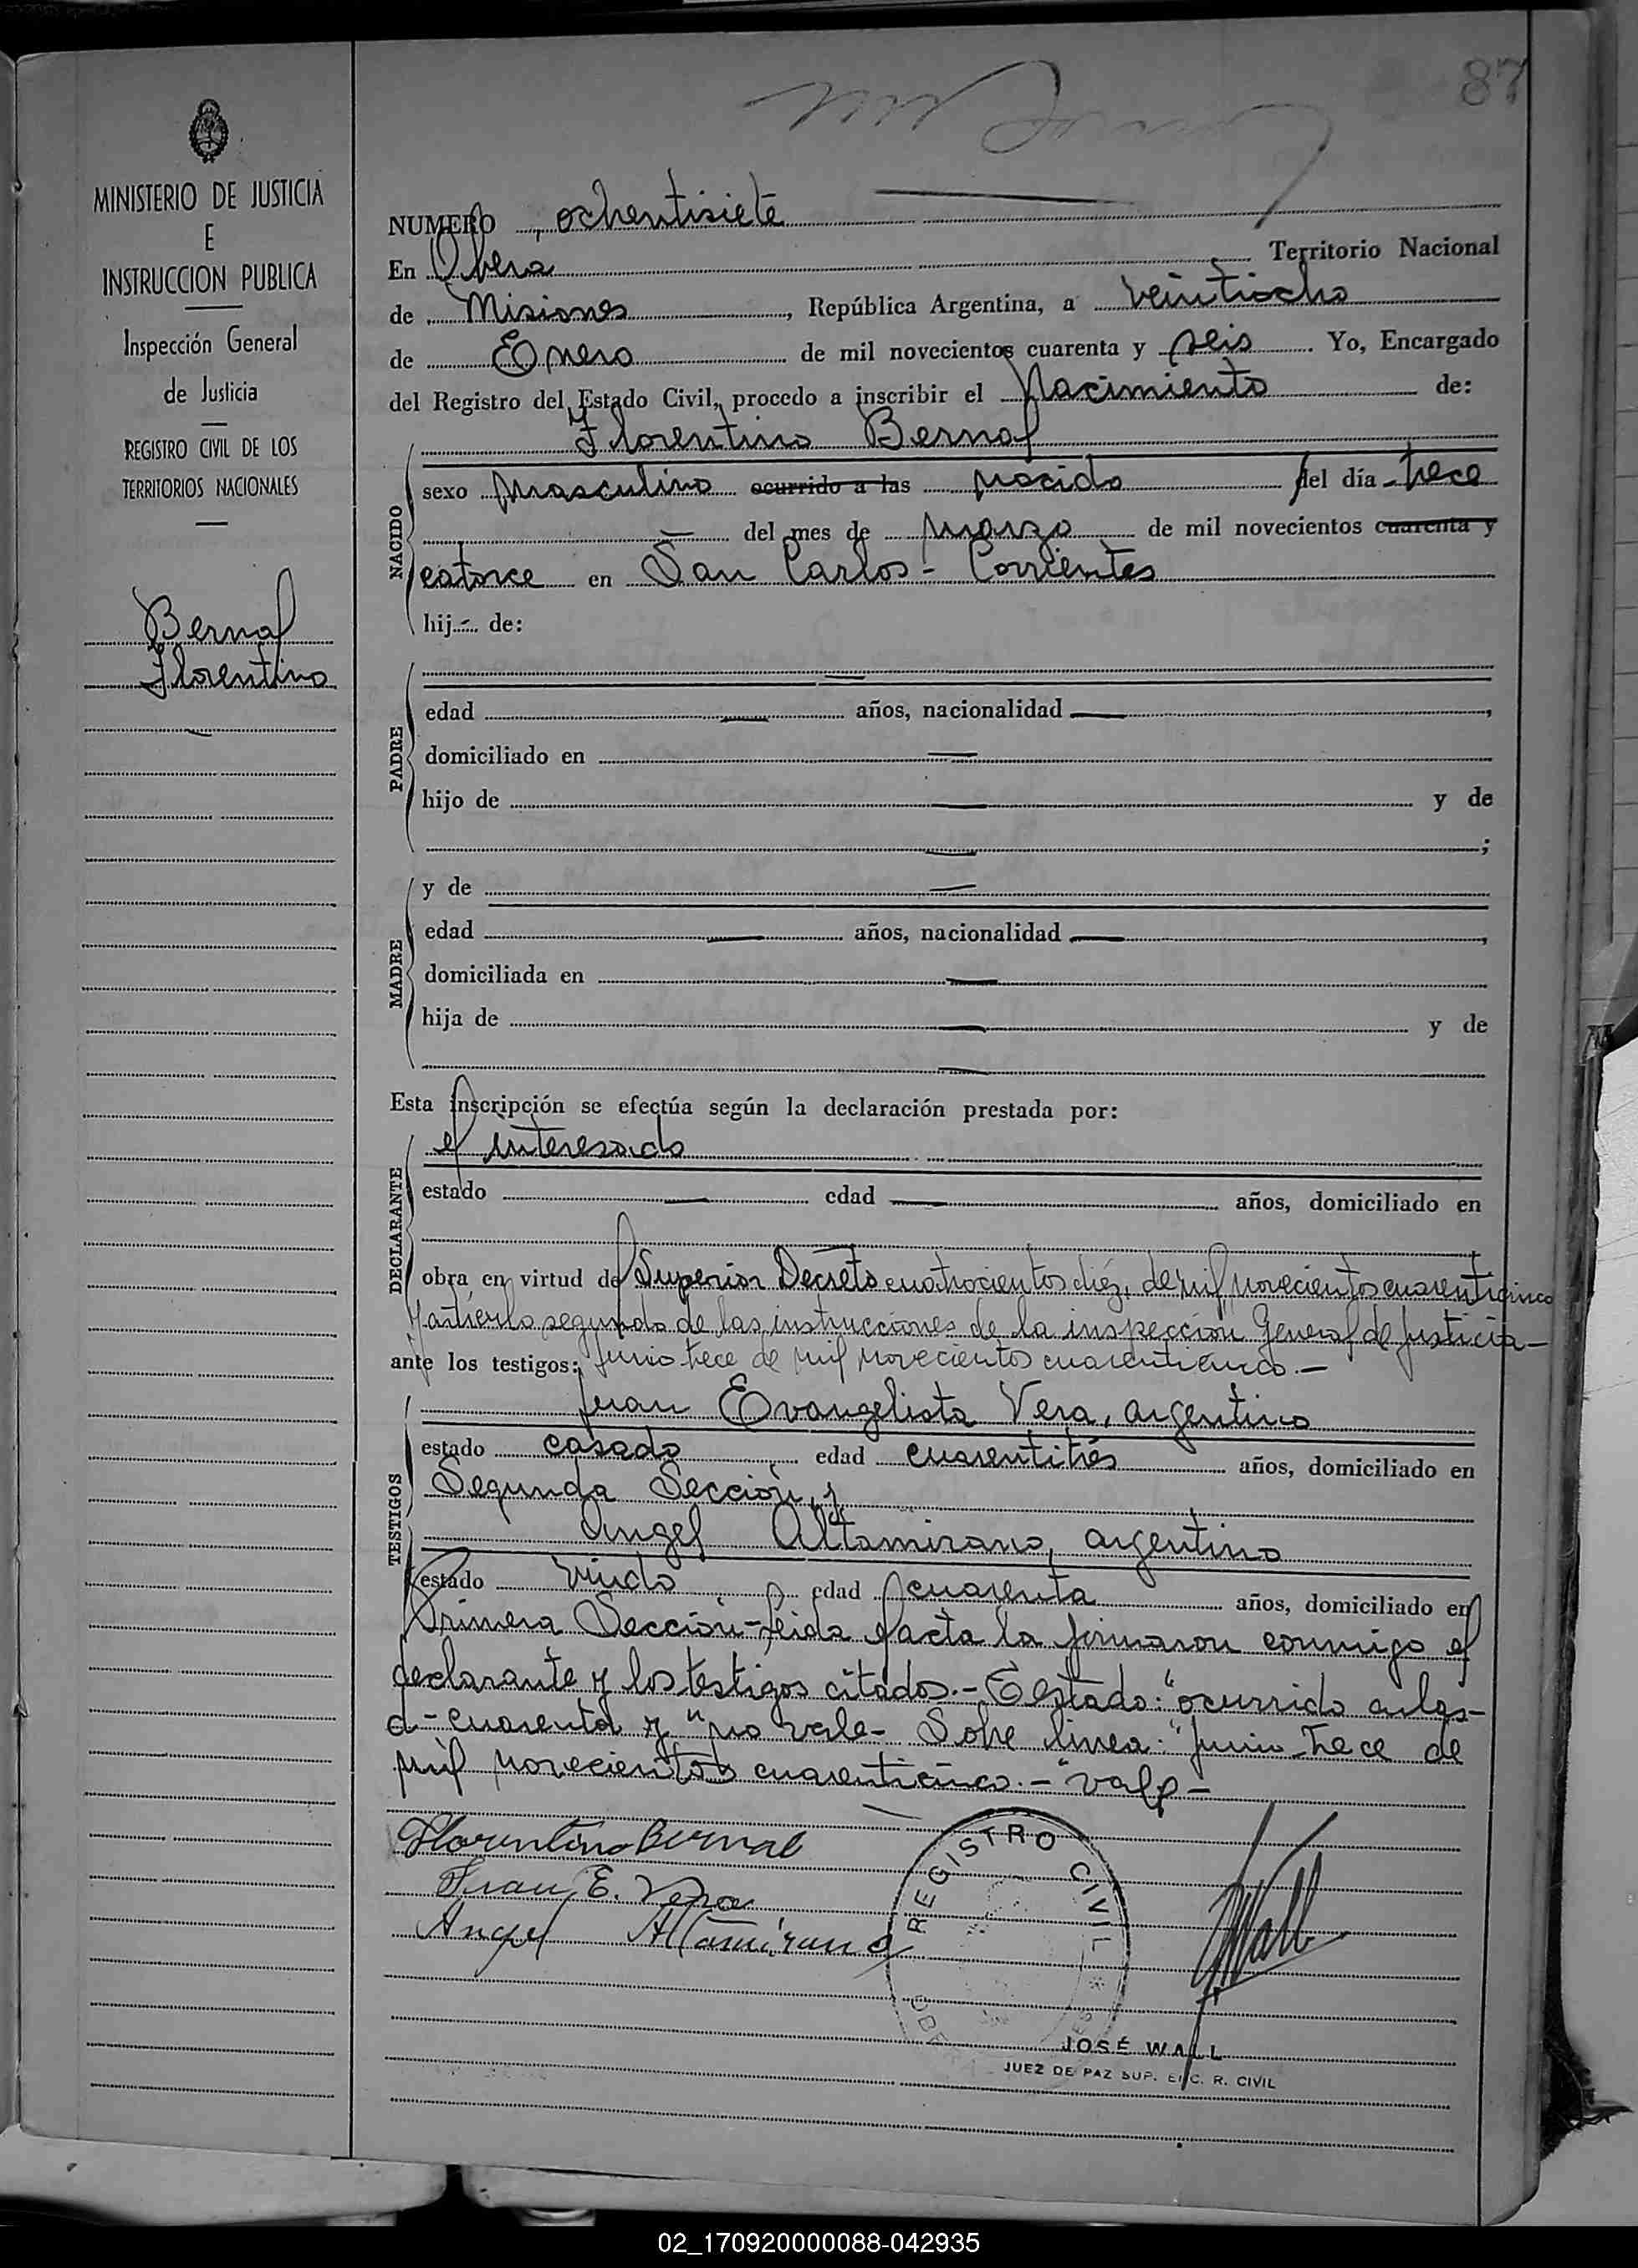 87
MINISTERIO DE JUSTICIA
E
INSTRUCCION PUBLICA
Inspección General
de Justicia
REGISTRO CIVIL DE LOS
TERRITORIOS NACIONALES
Bernal
Florentino
NUMERO ochentisiete
En Obera Territorio Nacional
de Misiones, República Argentina, a veintiocho
de Enero de mil novecientos cuarenta y seis. Yo, Encargado
del Registro del Estado Civil, procedo a inscribir el Nacimiento de:
Florentino Bernal
NACIDO
sexo masculino ocurrido a las nacido del día trece
del mes de marzo de mil novecientos cuarenta y
catorce en San Carlos - Corrientes
hij de:
PADRE
edad años, nacionalidad ,
domiciliado en
hijo de y de
;
MADRE
y de
edad años, nacionalidad ,
domiciliada en
hija de y de
Esta inscripción se efectúa según la declaración prestada por:
DECLARANTE
el interesado
estado edad años, domiciliado en
obra en virtud del Superior Decreto cuatrocientos diéz, de mil novecientos cuarenticinco
y artículo segundo de las instrucciones de la inspección General de Justicia-
ante los testigos: Junio trece de mil novecientos cuarenticinco.-
TESTIGOS
Juan Evangelista Vera, argentino
estado casado edad cuarentitrés años, domiciliado en
Segunda Sección, y
Angel Altamirano, argentino
estado viudo edad cuarenta años, domiciliado en
Primera Sección- leida el acta la firmaron conmigo el
declarante y los testigos citados.- "ocurrido a las-
cuarenta y" no vale- Sobre linea: "Junio- trece de
mil novecientos cuarenticinco.-" vale-
Florentino Bernal
Juan E. Vera
Angel Altamirano
REGISTRO CIVIL
JWall
JOSÉ WALL
JUEZ DE PAZ SUP. ENC. R. CIVIL
02_170920000088-042935